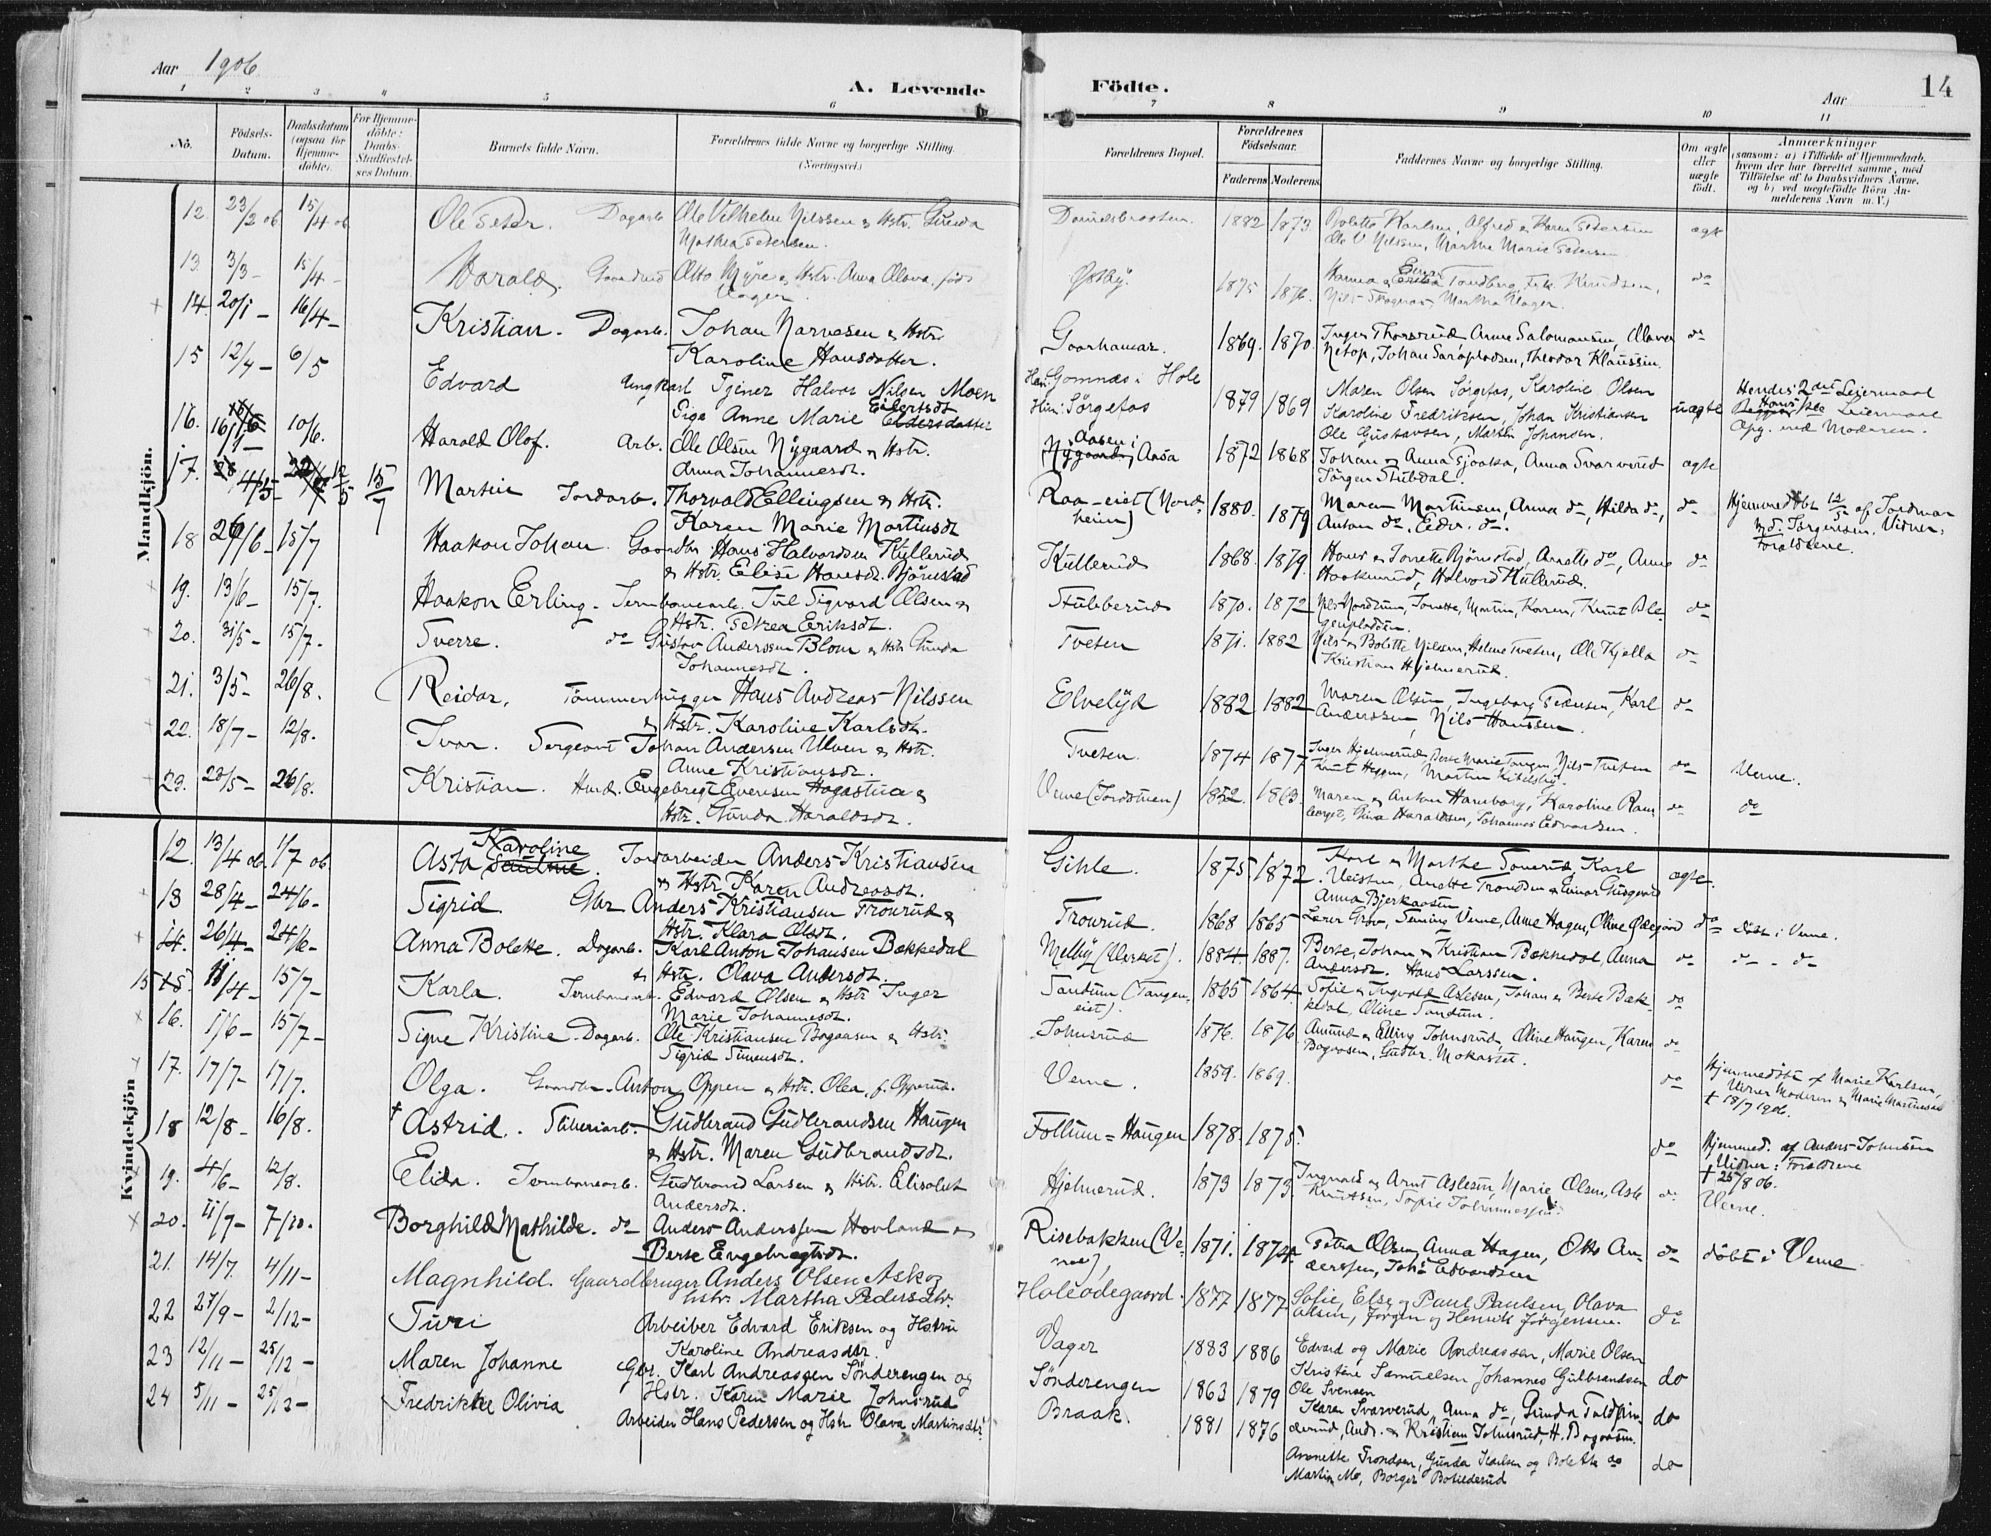 Aar 1906
A. Levende Födte.
Aar
14
1 2 3 4 5 6 7 8 9 10 11
No.
Födsels-Datum.
Daabsdatum (ogsaa for Hjemme-döbte).
For Hjemme-döbte: Daabs-Stadfæstel-ses Datum.
Barnets fulde Navn.
Forældrenes fulde Navne og borgerlige Stilling. (Næringsvei.)
Forældrenes Bopæl.
Forældrenes Födselsaar.
Faderens Moderens
Faddernes Navne og borgerlige Stilling.
Om ægte eller uægte födt.
Anmærkninger (saasom: a) i Tilfælde af Hjemmedaab, hvem der har forrettet samme, med Tilföielse af to Daabsvidners Navne, og b) ved uægtefödte Börn An-melderens Navn m. V.)
Mandkjön.
12. 23/2 ob 15/4 ob Ole Peter. Dagarb. Ole Vilhelm Nilssen & Hstr. Gunda
Mathea Petersen. 1882 1873 Bolette Karlsen, Alfred & Karen Petersen ægt
Ole V Nilssen, Martha Marie Petersen.
13. 3/3 – 15/4 – Harald. Otto Myre & Hstr. Anna Olava, föd
Østby. 1875 1876 Nils Skagnæs Martha Vager. do
14. 20/1 – 16/4 – Kristian. Dagarb. Johan Narvesen & Hstr.
Karoline Hansdatter. Gaarhamar. 1869. 1870. Inger Thorsrud, Anne Salomonsen, Olaves do
Netop, Johan Sarapladsen, Theodor Klaussen.
15 12/4 – 6/5 Edvard Ungkarl Tjener Halvor Nilsen Moen
Pige Anne Marie Eilertsdt.
Gomnæs i Hole
Hun: Sørgefos 1879 1869 Maren Olsen Sørgefos, Karoline Olsen
Karoline Fredriksen, Johan Kristiansen uægte
Ole Gustavsen, Martin Johansen.
Hendes 2det Leiermaal
Opg. ved Moderen.
16. 10/6. Harald Olof. Arb. Ole Olsen Nygaard & Hstr.
Anna Johannesdt. Aasa 1872 1868 Johan & Anna Gjoaka, Anna Svarverud ægte
Jørgen Stubdal.
17. 15/7 Martin Jordarb. Thorvald Ellingsen & Hstr.
Karen Marie Martinsdt. Raa-eiet (Nord-
heim) 1880. 1879 Maren Martinsen, Anna do, Hilda do, do
Anton do. Eeder. do.
Hjemmedöbt 12/5 af Jordmor
Jørgensen. Vidner:
Forældrene.
18 26/6 – 15/7 Haakon Johan. Gaardbr. Hans Halvordsen Kullerud
& Hstr. Elise Hansdt. Bjørnstad Kullerud 1868. 1879. Hans & Jorette Bjørnstad, Annette do, Anne do
Haakenrud, Halvord Kullerud.
19. 13/6 – 15/7. Haakon Erling. Jernbanearb. Jul Sigvard Olsen &
Hstr. Petrea Eriksdt. Stubberud 1870. 1872 do
20. 31/5 – 15/7. Sverre. do Gustav Anderssen Blom & Hstr. Gunda
Johannesdt. Tveten 1871. 1882 Nils & Bolette Nilssen, Helene Tveten, Ole Kjella do
Kristian Hjelmerud.
21. 3/5 – 26/8. Reidar. Tömmerhugger Hans Andreas Nilssen
& Hstr. Karoline Karlsdt. Elvelyd 1882 1882 Maren Olsen, Ingeborg Pedersen, Karl do
Anderssen, Nils Hanssen.
22. 18/7 – 12/8. Ivar. Sergeant Johan Andersen Ulven & Hstr.
Anne Kristiansdt. Tveten. 1874 1877 Inger Hjelmerud, Berte Marie Tangen, Nils Tveten do Verne.
Knut Heggen, Martin Kihelsby.
23. 23/5 – 26/8. Kristian. Husm. Engebregt Evensen Hagastua &
Hstr. Gunda Haraldsdt. Verne (Jordstuen) 1852. 1863. Maren & Anton Hamborg, Karoline Ram- do do
berget, Gina Haraldsen, Johannes Edvardsen.
Kvindekjön
12. 13/4 ob. 1/7 ob. Asta Karoline. Jordarbeider Anders Kristiansen
& Hstr. Karen Andreasdt. Gihle. 1875 1872 Karl & Marthe Tonerud, Karl ægte.
Veisten, Anette Trondsen & Einar Gusgaard
Anna Bjerkaasen
13 28/4 – 24/6 – Sigrid. Gbr Anders Kristiansen Tronrud &
Hstr. Klara Olsdt. Tronrud. 1868 1865 Lærer Grov, Teming Verne, Anne Hagen, Oline Ødegård do döbt i Verne.
14. 26/4 – 24/6 – Anna Bolette. Dagarb. Karl Anton Johansen Bækkedal
& Hstr. Olava Andersdt. Melby (Verket). 1884 1887. Berte, Johan & Kristian Bækkedal, Anna do do - do
Andersdt. Hans Larssen.
15 11/4 – 15/7 – Karla. Jernbanearb. Edvard Olsen & Hstr Inger
Marie Johannesdt. Tandum (Tangen,
eiet). 1865 1864 Sofie & Ingvald Aslesen, Johan & Berte Bæk- do
kedal, Oline Tandum.
16. 1/6 – 15/7 – Signe Kristine. Dagarb. Ole Kristiansen Bagaasen & Hstr.
Sigrid Simensdt. Johnsrud 1876. 1876 Amund & Elling Johnsrud, Oline Haugen, Karen do
Bagaasen, Gudbr. Mokastet.
17. 17/7 – 17/7. Olga. Gaardbr. Anton Oppen & Hstr. Olea, f. Opperud. Verne. 1859. 1869. do Hjemmedöbt af Marie Karlsen,
Vidner Moderen & Marie Martinsen
† 18/7 1906.
18 12/8 – 16/8. † Astrid. Sliberiarb. Gudbrand Gudbrandsen Haugen
& Hstr. Maren Gudbrandsdt. Follum-Haugen 1878. 1875. do Hjemmed. af Anders Johnsen
Vidner: Forældrene
† 25/8 06.
19. 4/6 – 12/8. Elida. Jernbanearb. Gudbrand Larsen & Hstr. Elisabet
Andersdt. Hjelmerud. 1873 1873 Ingvald & Arnt Aslesen, Marie Olsen, Asle do Verne.
Knutsen, Sofie Johannessen.
20. 11/7 – 7/10. Borghild Mathilde. do Anders Anderssen Hovland &
Berte Engebregtsdt. Risebakken (Ve-
rne), 1871. 1874. Petra Olsen, Anna Hagen, Otto An- do döbt i Verne
derssen, Johs Edvardsen
21. 14/7. 4/11 – Magnhild. Gaardbruger Anders Olsen Ask og
hstr. Martha Pedersdtr. Holeödegaard. 1877 1877 Sofie, Else og Paul Paulsen, Olava
Olsen, Jørgen og Henrik Jørgensen. do
22 27/9 – 2/12 – Turi Arbeiber Edvard Eriksen og Hstru
Karoline Andreasdtr. Vager 1883 1886 Edvard og Marie Andreassen, Marie Olsen
Kristine Samuelsen Johannes Gulbrandsen do
Ole Svensen
23 12/11 – 25/12 – Maren Johanne Gbr. Karl Andreassen Sönderengen og
Hstr. Karen Marie Johnsrud Sönderengen 1863 1879 Karen Svarverud, Anna do, Gunda do
Andr. & Kristian Johnsrud, H. Bagaasen.
24 5/11 – 25/12 – Fredrikke Olivia Arbeider Hans Pedersen og Hstr Olava Martinsdtr. Braak. 1881 1876 Annette Trondsen, Gunda Karlsen og Bolette do do
Martin Mo, Borger Botilderud